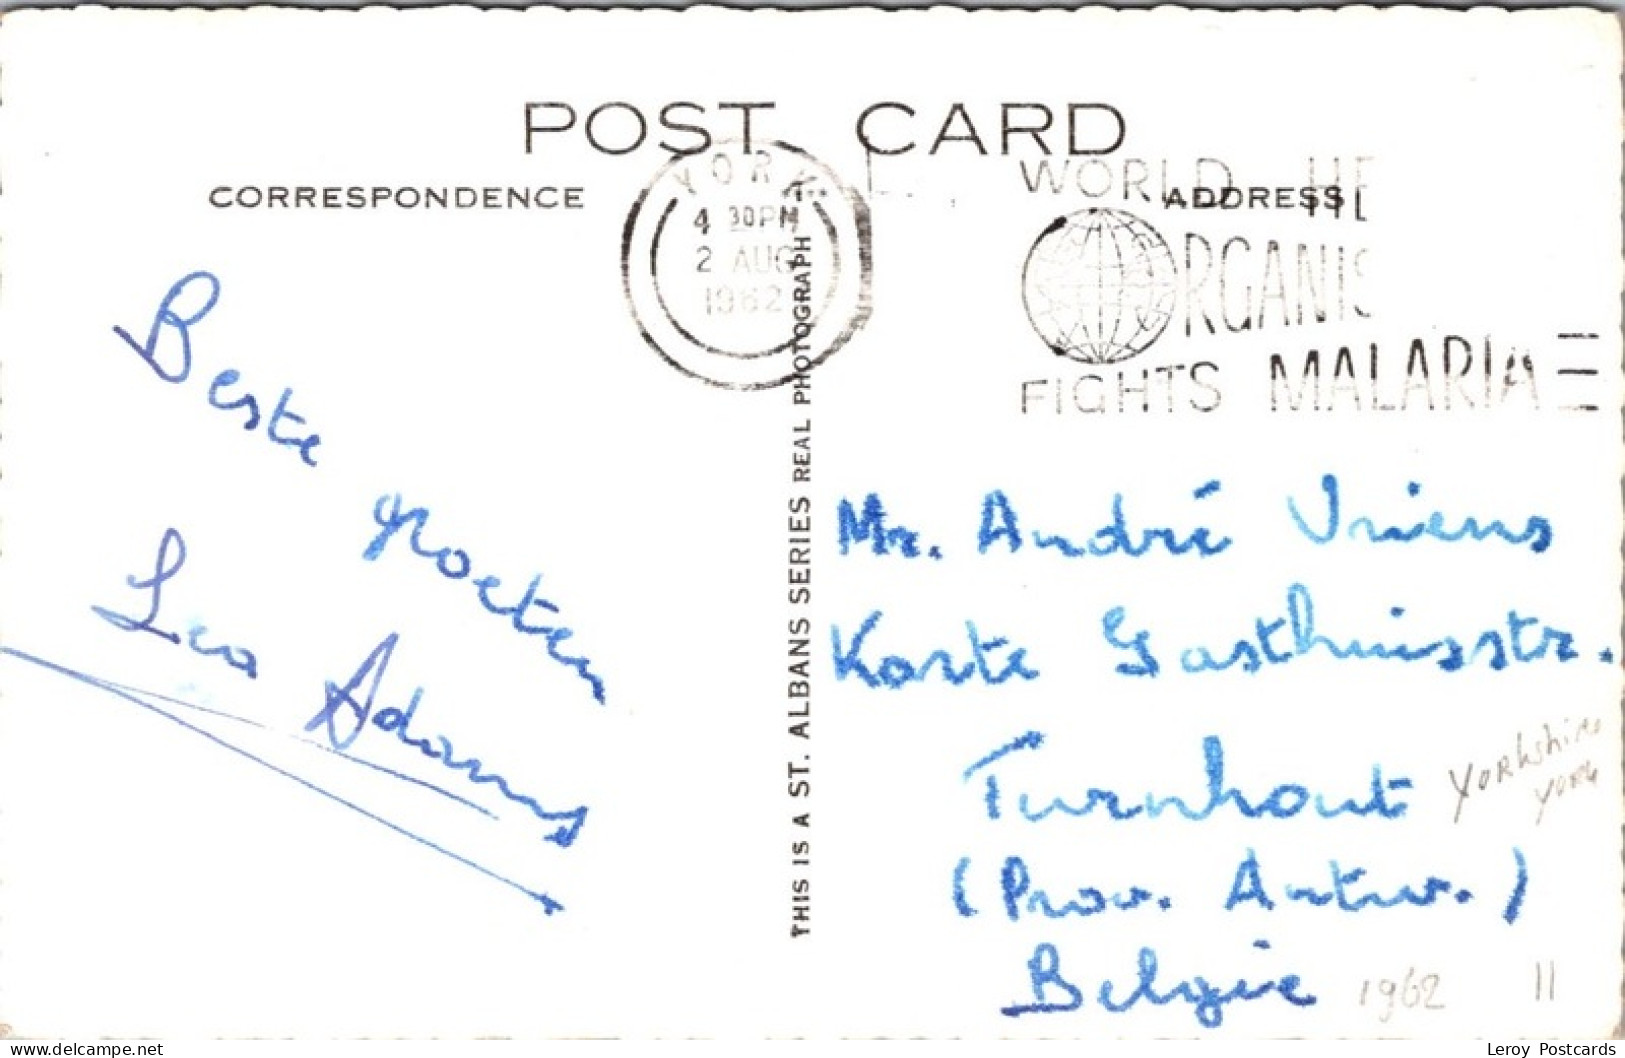 POST CARD
CORRESPONDENCE
ADDRESS
YORK
4 30PM
2 AUG
1962
WORLD HE
ORGANIS
FIGHTS MALARIA
Beste groeten
Leo Adams
THIS IS A ST. ALBANS SERIES REAL PHOTOGRAPH
Mr. André Vriens
Korte Gasthuisstr.
Turnhout
(Prov. Antw.)
België
Yorkshire
York
1962
11
delcampe.net
Leroy Postcards